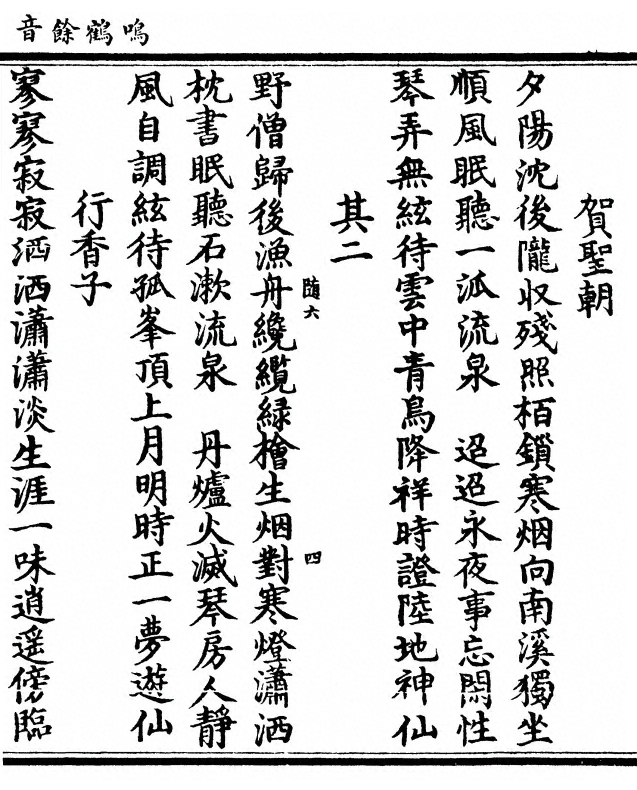 鳴鶴餘音
賀聖朝
夕陽沈後隴収殘照栢鎖寒烟向南溪獨坐
順風眠聽一泒流泉　迢迢永夜事忘閑性
琴弄無絃待雲中青鳥降祥時證陸地神仙
其二
隨六
四
野僧歸後漁舟纔纜緑檜生烟對寒燈瀟洒
枕書眠聽石漱流泉　丹爐火滅琴房人靜
風自調絃待孤峯頂上月明時正一夢遊仙
行香子
寥寥寂寂洒洒瀟瀟淡生涯一味逍遥傍臨